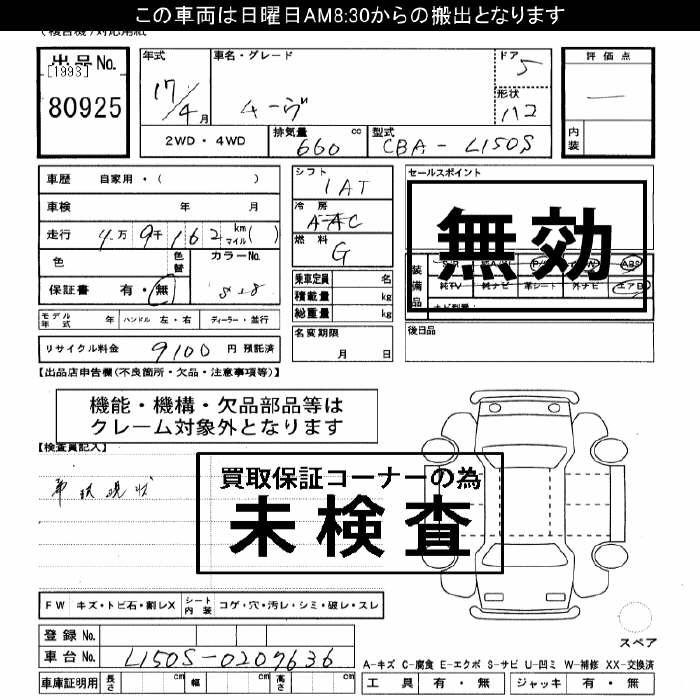 この車両は日曜日AM8:30からの搬出となります
出品No.
[1993]
80925
年式
17/4月
車名・グレード
ムーヴ
ドア
5
形状
ハコ
評価点
内装
2WD・4WD
排気量 660 cc
型式 CBA-L150S
車歴 自家用・( )
車検 年 月
走行 4万9千162 km マイル ( )
色 色替 カラーNo.
S28
保証書 有・無
モデル年式 年 ハンドル 左・右 ディーラー・並行
リサイクル料金 9100 円 預託済
シフト
IAT
冷房
AAC
燃料
G
乗車定員 名
積載量 kg
総重量 kg
名変期限
月 日
セールスポイント
無効
装備品
ABS
純TV 純ナビ 革シート 外ナビ エアB
後日品
【出品店申告欄(不良箇所・欠品・注意事項等)】
機能・機構・欠品部品等は
クレーム対象外となります
【検査員記入】
車状現状
買取保証コーナーの為
未検査
FW キズ・トビ石・割レX シート内装 コゲ・穴・汚レ・シミ・破レ・スレ
登録No.
車台No. L150S-0207636
車庫証明用 長さ cm 幅 cm 高さ cm
スペア
A-キズ C-腐食 E-エクボ S-サビ U-凹ミ W-補修 XX-交換済
工具 有・無 ジャッキ 有・無